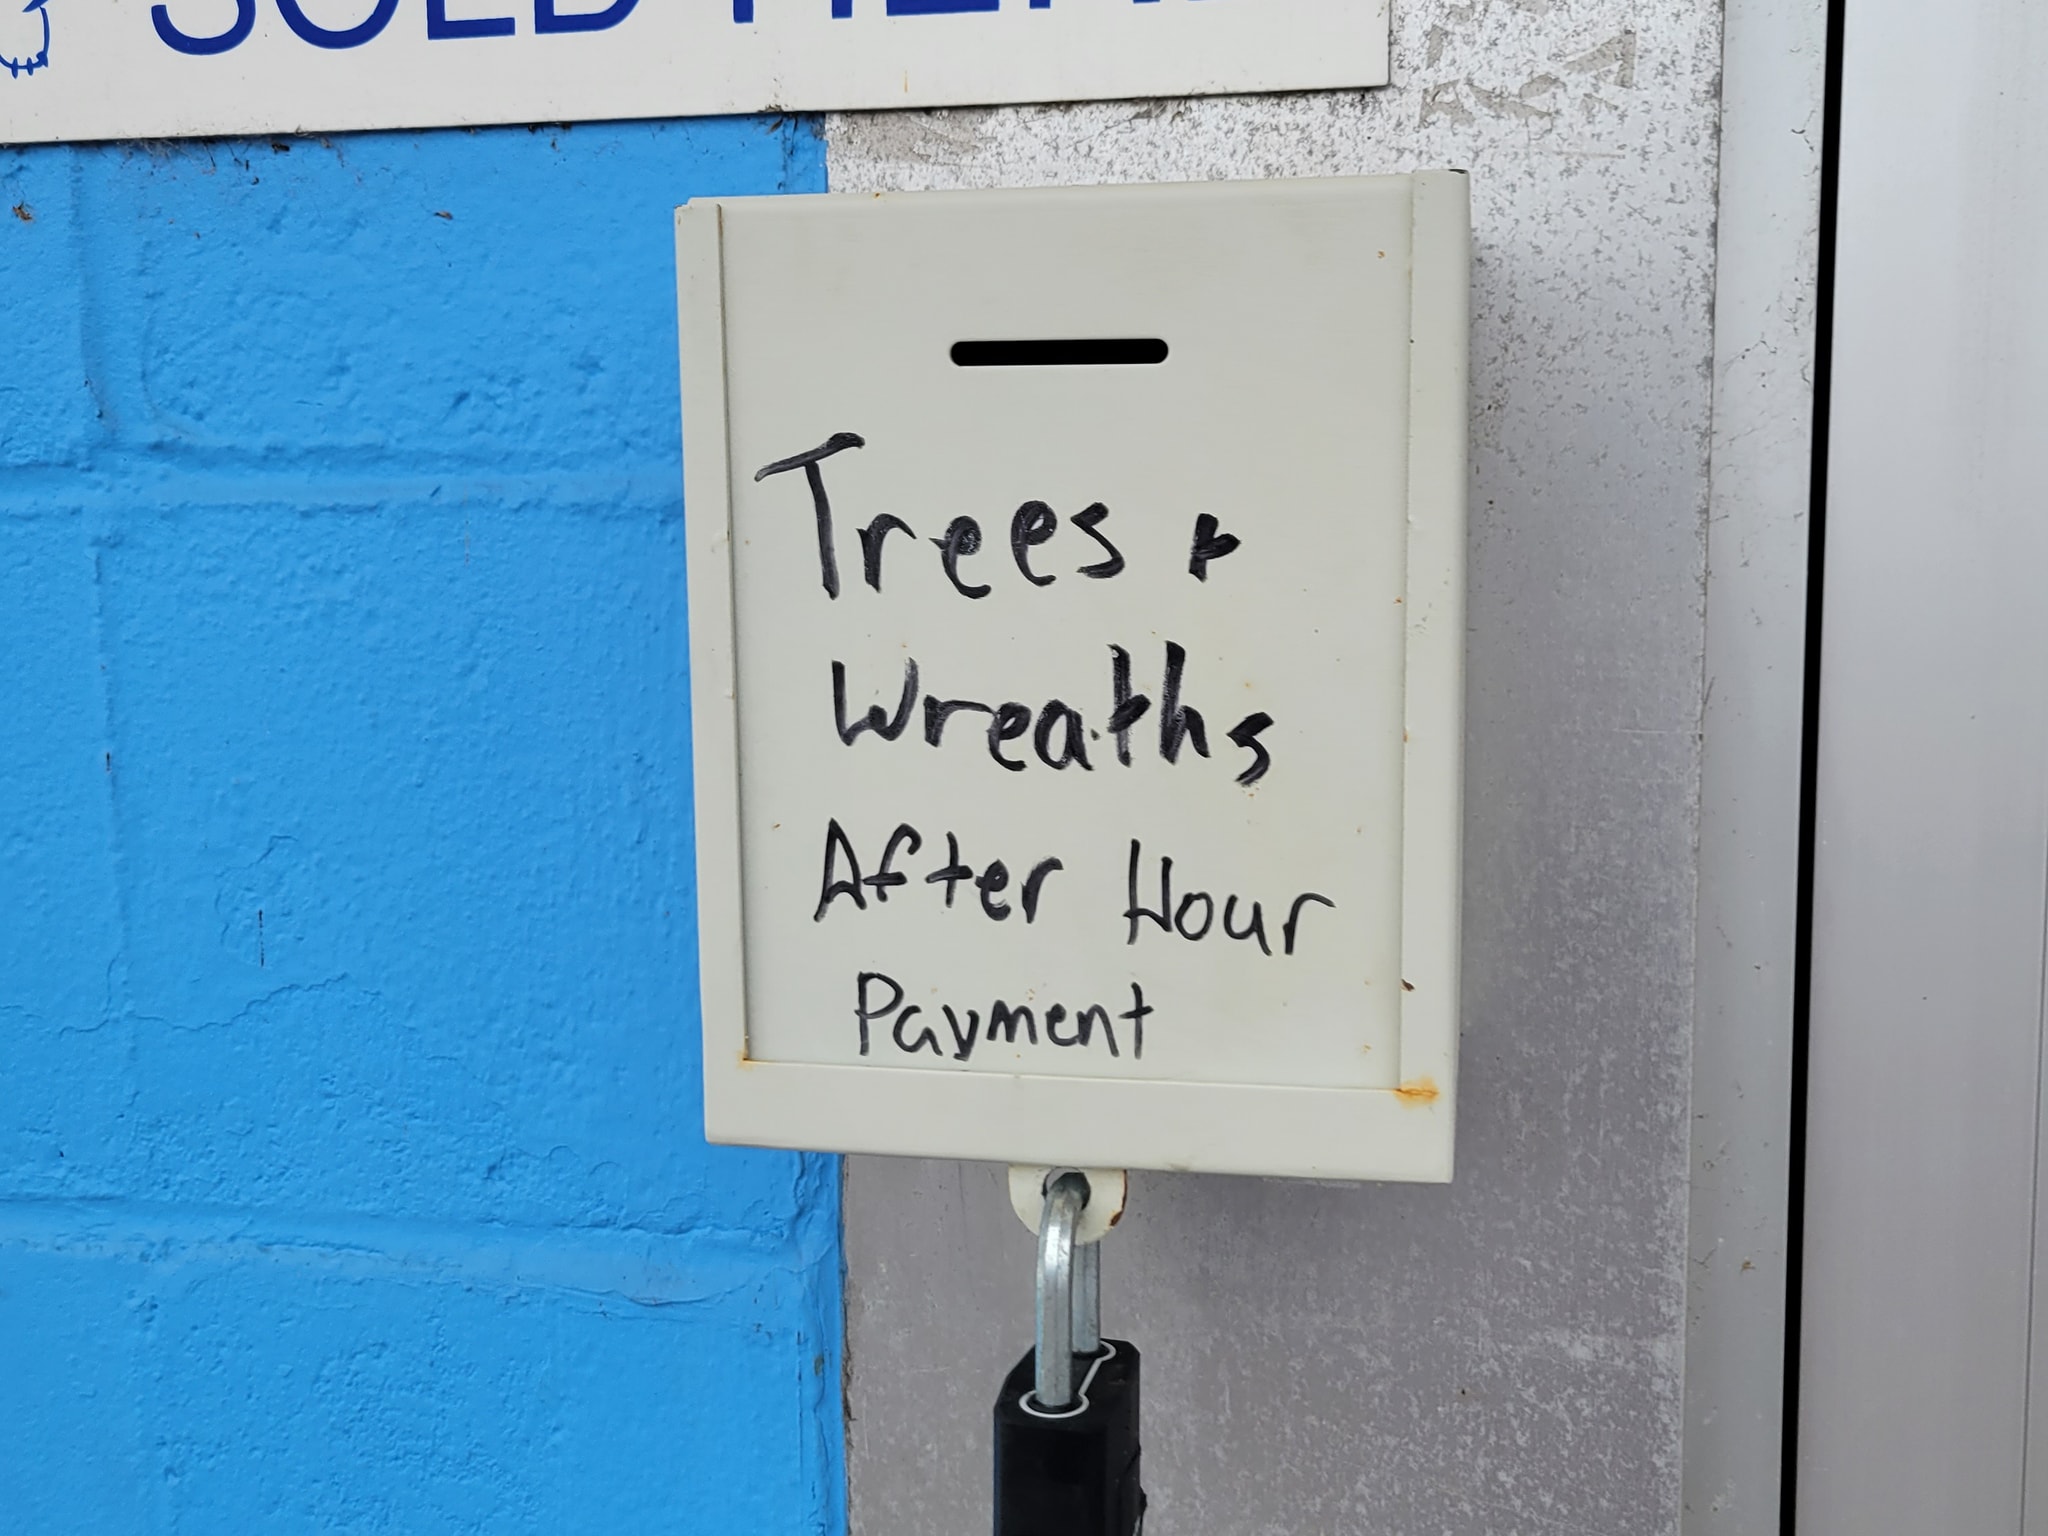 SOLD HERE
Trees +
Wreaths
After Hour
Payment